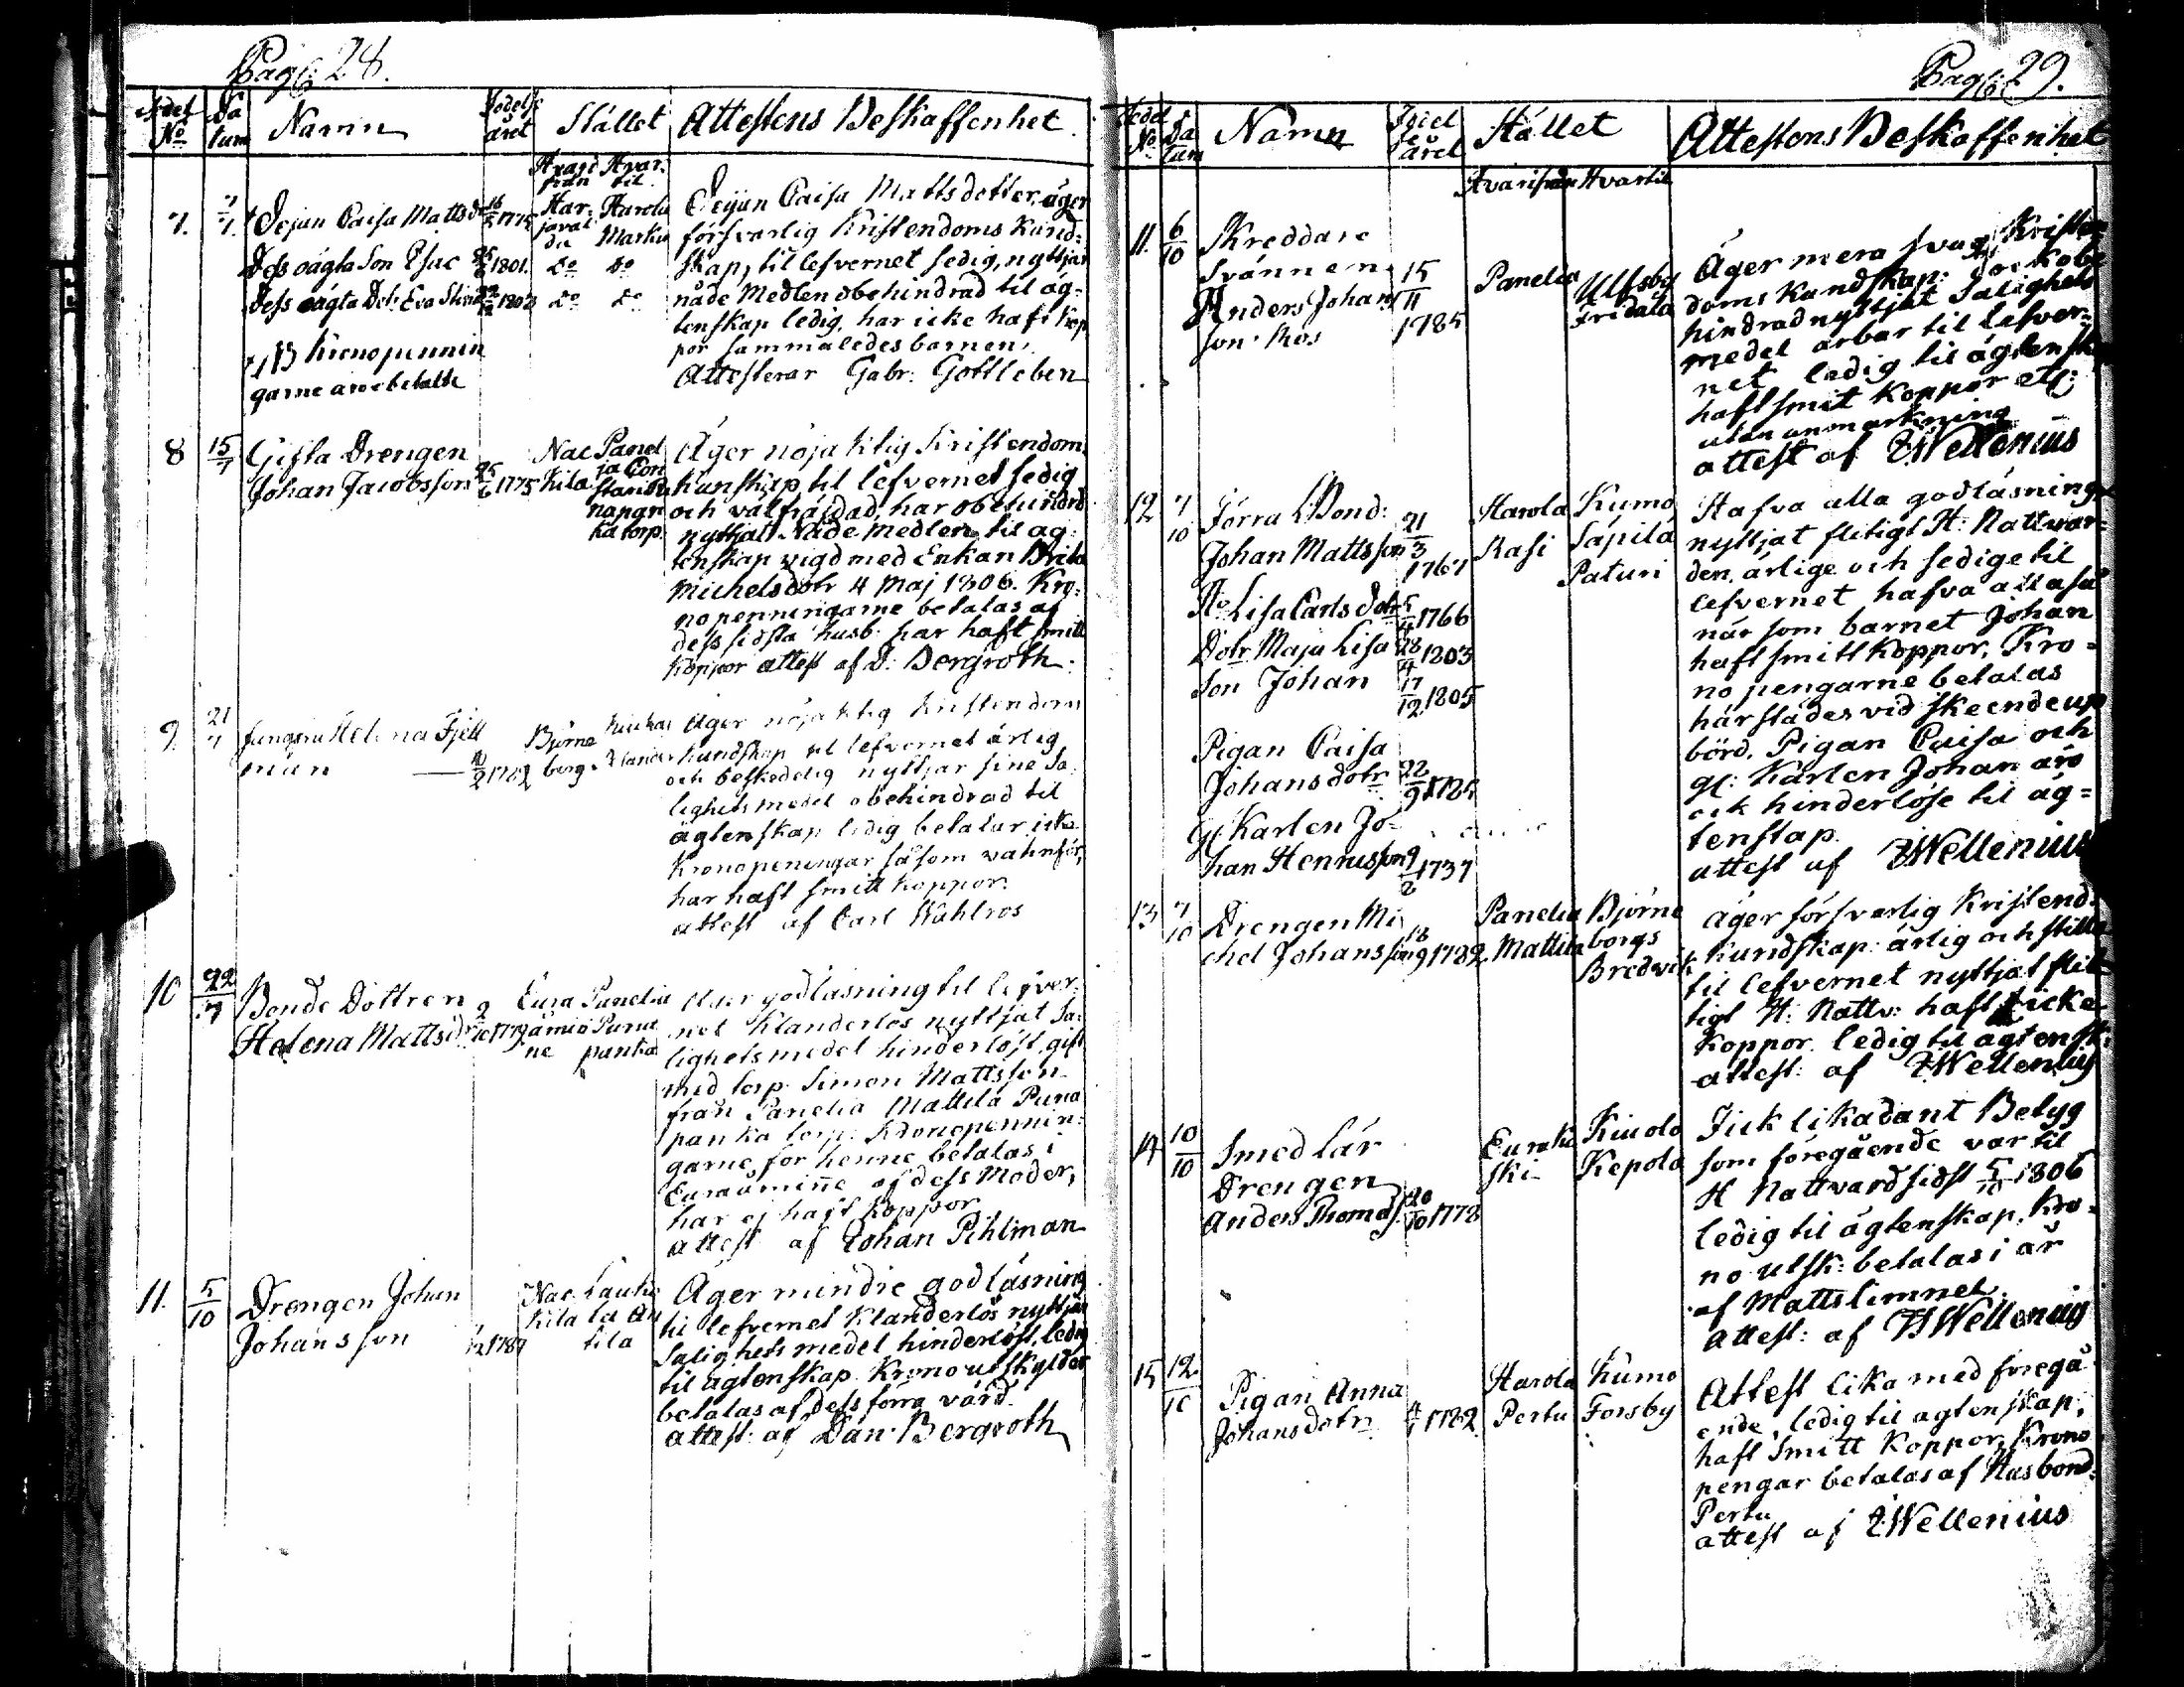 Pag: 28.
Sedel No
Datum
Namn
Födelse året
Stället
Attestens Beskaffenhet
Hvarifrån Hvartil
7. 7/7. Pejun Caisa Matts dr 1775 Harjaval da Harola Marku
Dess oägta Son Esac 1801. do do
Dess oägta Dotr Eva Stina 1803 do do
NB Kronopennin
garne äro betalte
Caisa Mattsdotter, äger
försvarlig Kristendoms Kund-
skap, til lefvernet sedig, nyttjar
nåde Medlen obehindrad til äg-
tenskap ledig, har icke haft kop
por sammaledes barnen.
Attesterar Gabr: Gottleben
8 15/7 Gifta Drengen
Johan Jacobsson 25/6 1775
Nac Kila
Panelja
nangri
ka torp.
Äger nöjaktig Kristendom
kunskap til lefvernet sedig
och välfräjdad, har obehindrad
nyttjatt Nåde Medlen til äg-
tenskap vigd med Enkan Brita
Michelsdotr 4 Maj 1806. Kro-
nopenningarne betalas af
dess sidsta husb: har haft smitt
koppor attest af D: Bergroth.
9. 21/7 Jungfru Helena Fjell
man 10/2 1782
Björne borg
Äger nöjaktig Kristendoms
Kundskap til lefvernet ärlig
och beskedelig nyttjar sine Sa-
lighets medel obehindrad til
ägtenskap ledig betalar icke
Kronopeningar såsom vahnför,
har haft smitt koppor.
attest af Carl Wahlros
10 22/7 Bonde Dottren
Helena Matts dr 9/10 1779
Eura åmin ne
Panelia Puna panka
Äger godläsning til lefver-
net Klanderlös nyttjat Sa-
lighets medel hinderlöst gift
med torp. Simon Mattsson
från Panelia Mattila Puna
panka torp: Kronopennin-
garne för henne betalas i
Euraåminne af dess Moder,
har ej haft koppor
attest af Johan Pihlman
11. 5/10 Drengen Johan
Johansson 1789
Nac Kila
Lauttila An tila
Äger mindre godläsning
til lefvernet Klanderlös nyttjar
Salighets medel hinderlöst, ledig
til ägtenskap Kronoutskylder
betalas af dess förra värd.
attest: af Dan: Bergroth
Pag: 29.
Sedel No
Datum
Namn
Födelse året
Stället
Attestens Beskaffenhet
Hvarifrån Hvartil
11. 6/10 Skreddare
Svännen
Anders Johans
son Ros
15/11 1785
Panelia
Ulfsby
Fridala
Äger mera svag Kristen
doms Kundskap: dock obe
hindrad nyttjat Salighets
medel ärbar til lefver-
net ledig til ägtensk
haft smit koppor etc:
utan anmärkning
attest af Wellenius
12 7/10 Förra Bond:
Johan Mattsson 21/3 1767
Ho Lisa Carls dotr 1766
Dotr Maja Lisa 28/4 1803
Son Johan 17/12 1805
Pigan Caisa
Johansdotr 22/9 1785
Gl: Karlen Jo-
han Henrisson 9/2 1737
Harola
Rasi
Kumo
Säpilä
Paturi
Hafva alla godläsning
nyttjat flitigt H: Nattvar-
den, ärlige och sedige til
lefvernet hafva alla så
när som barnet Johan
haft smitt koppor, Kro-
no pengarne betalas
här städes vid skeende up
börd. Pigan Caisa och
gl: Karlen Johan äro
ock hinderlöse til äg-
tenskap.
attest af Wellenius
13 7/10 Drengen Mi
chel Johansson 18/9 1782
Panelia
Mattila
Björne
borgs
Bredvik
Äger försvarlig Kristend:
Kundskap: ärlig och stilla
til lefvernet nyttjat flit
tigt H: Nattv: haft icke
Koppor ledig til ägtensk:
attest: af Wellenius
14 10/10 Smed lär
Drengen
Anders Thomas. 20/10 1778
Eura Ka
ski
Kiuolo
Kepola
Fick likadant Betyg
som föregående var til
H Nattvard sidst 5/10 1806
ledig til ägtenskap. Kro-
no utsk: betalas i år
af Matts Limnel.
attest: af Wellenius
15 12/10 Pigan Anna
Johansdotr 1782
Harola
Pertu
Kumo
Forsby
Attest lika med föregå-
ende, ledig til ägtenskap,
haft smitt koppor, Krono
pengar betalas af Husbond:
Pertu
attest af Wellenius